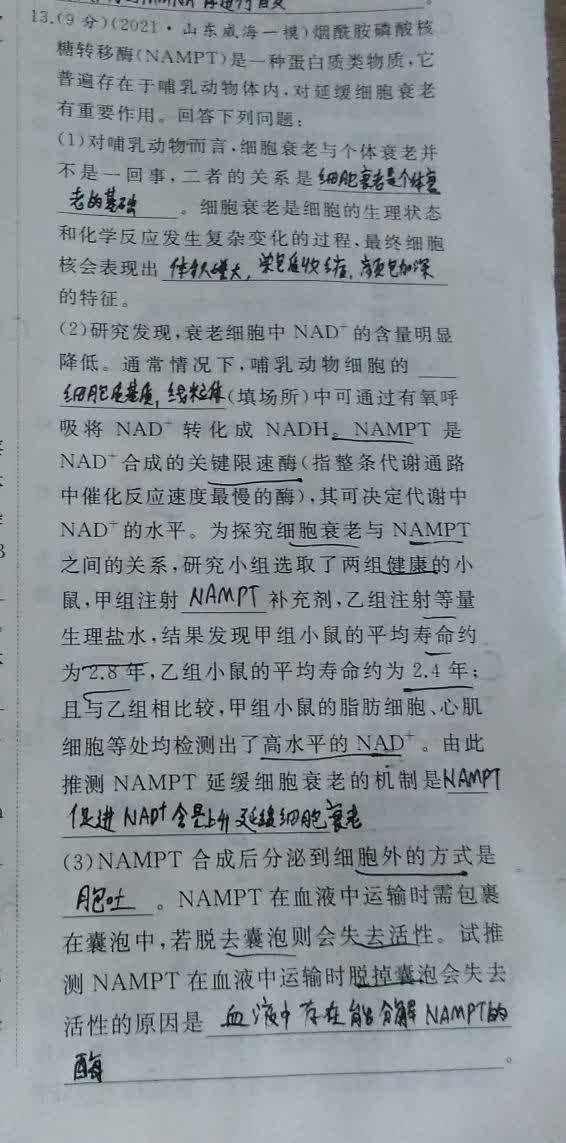 13.(9 分)(2021·山东威海一模)烟酰胺磷酸核
糖转移酶(NAMPT)是一种蛋白质类物质,它
普遍存在于哺乳动物体内,对延缓细胞衰老
有重要作用。回答下列问题:
(1)对哺乳动物而言,细胞衰老与个体衰老并
不是一回事,二者的关系是 细胞衰老是个体衰
老的基础 。细胞衰老是细胞的生理状态
和化学反应发生复杂变化的过程,最终细胞
核会表现出 体积增大,染色质收缩,颜色加深
的特征。
(2)研究发现,衰老细胞中 NAD⁺ 的含量明显
降低。通常情况下,哺乳动物细胞的
细胞质基质,线粒体(填场所)中可通过有氧呼
吸将 NAD⁺ 转化成 NADH。NAMPT 是
NAD⁺合成的关键限速酶(指整条代谢通路
中催化反应速度最慢的酶),其可决定代谢中
NAD⁺的水平。为探究细胞衰老与 NAMPT
之间的关系,研究小组选取了两组健康的小
鼠,甲组注射 NAMPT 补充剂,乙组注射等量
生理盐水,结果发现甲组小鼠的平均寿命约
为 2.8 年,乙组小鼠的平均寿命约为 2.4 年;
且与乙组相比较,甲组小鼠的脂肪细胞、心肌
细胞等处均检测出了高水平的 NAD⁺。由此
推测 NAMPT 延缓细胞衰老的机制是NAMPT
促进 NAD⁺含量上升 延缓细胞衰老
(3)NAMPT 合成后分泌到细胞外的方式是
胞吐 。NAMPT 在血液中运输时需包裹
在囊泡中,若脱去囊泡则会失去活性。试推
测 NAMPT 在血液中运输时脱掉囊泡会失去
活性的原因是 血液中存在能分解 NAMPT的
酶 。